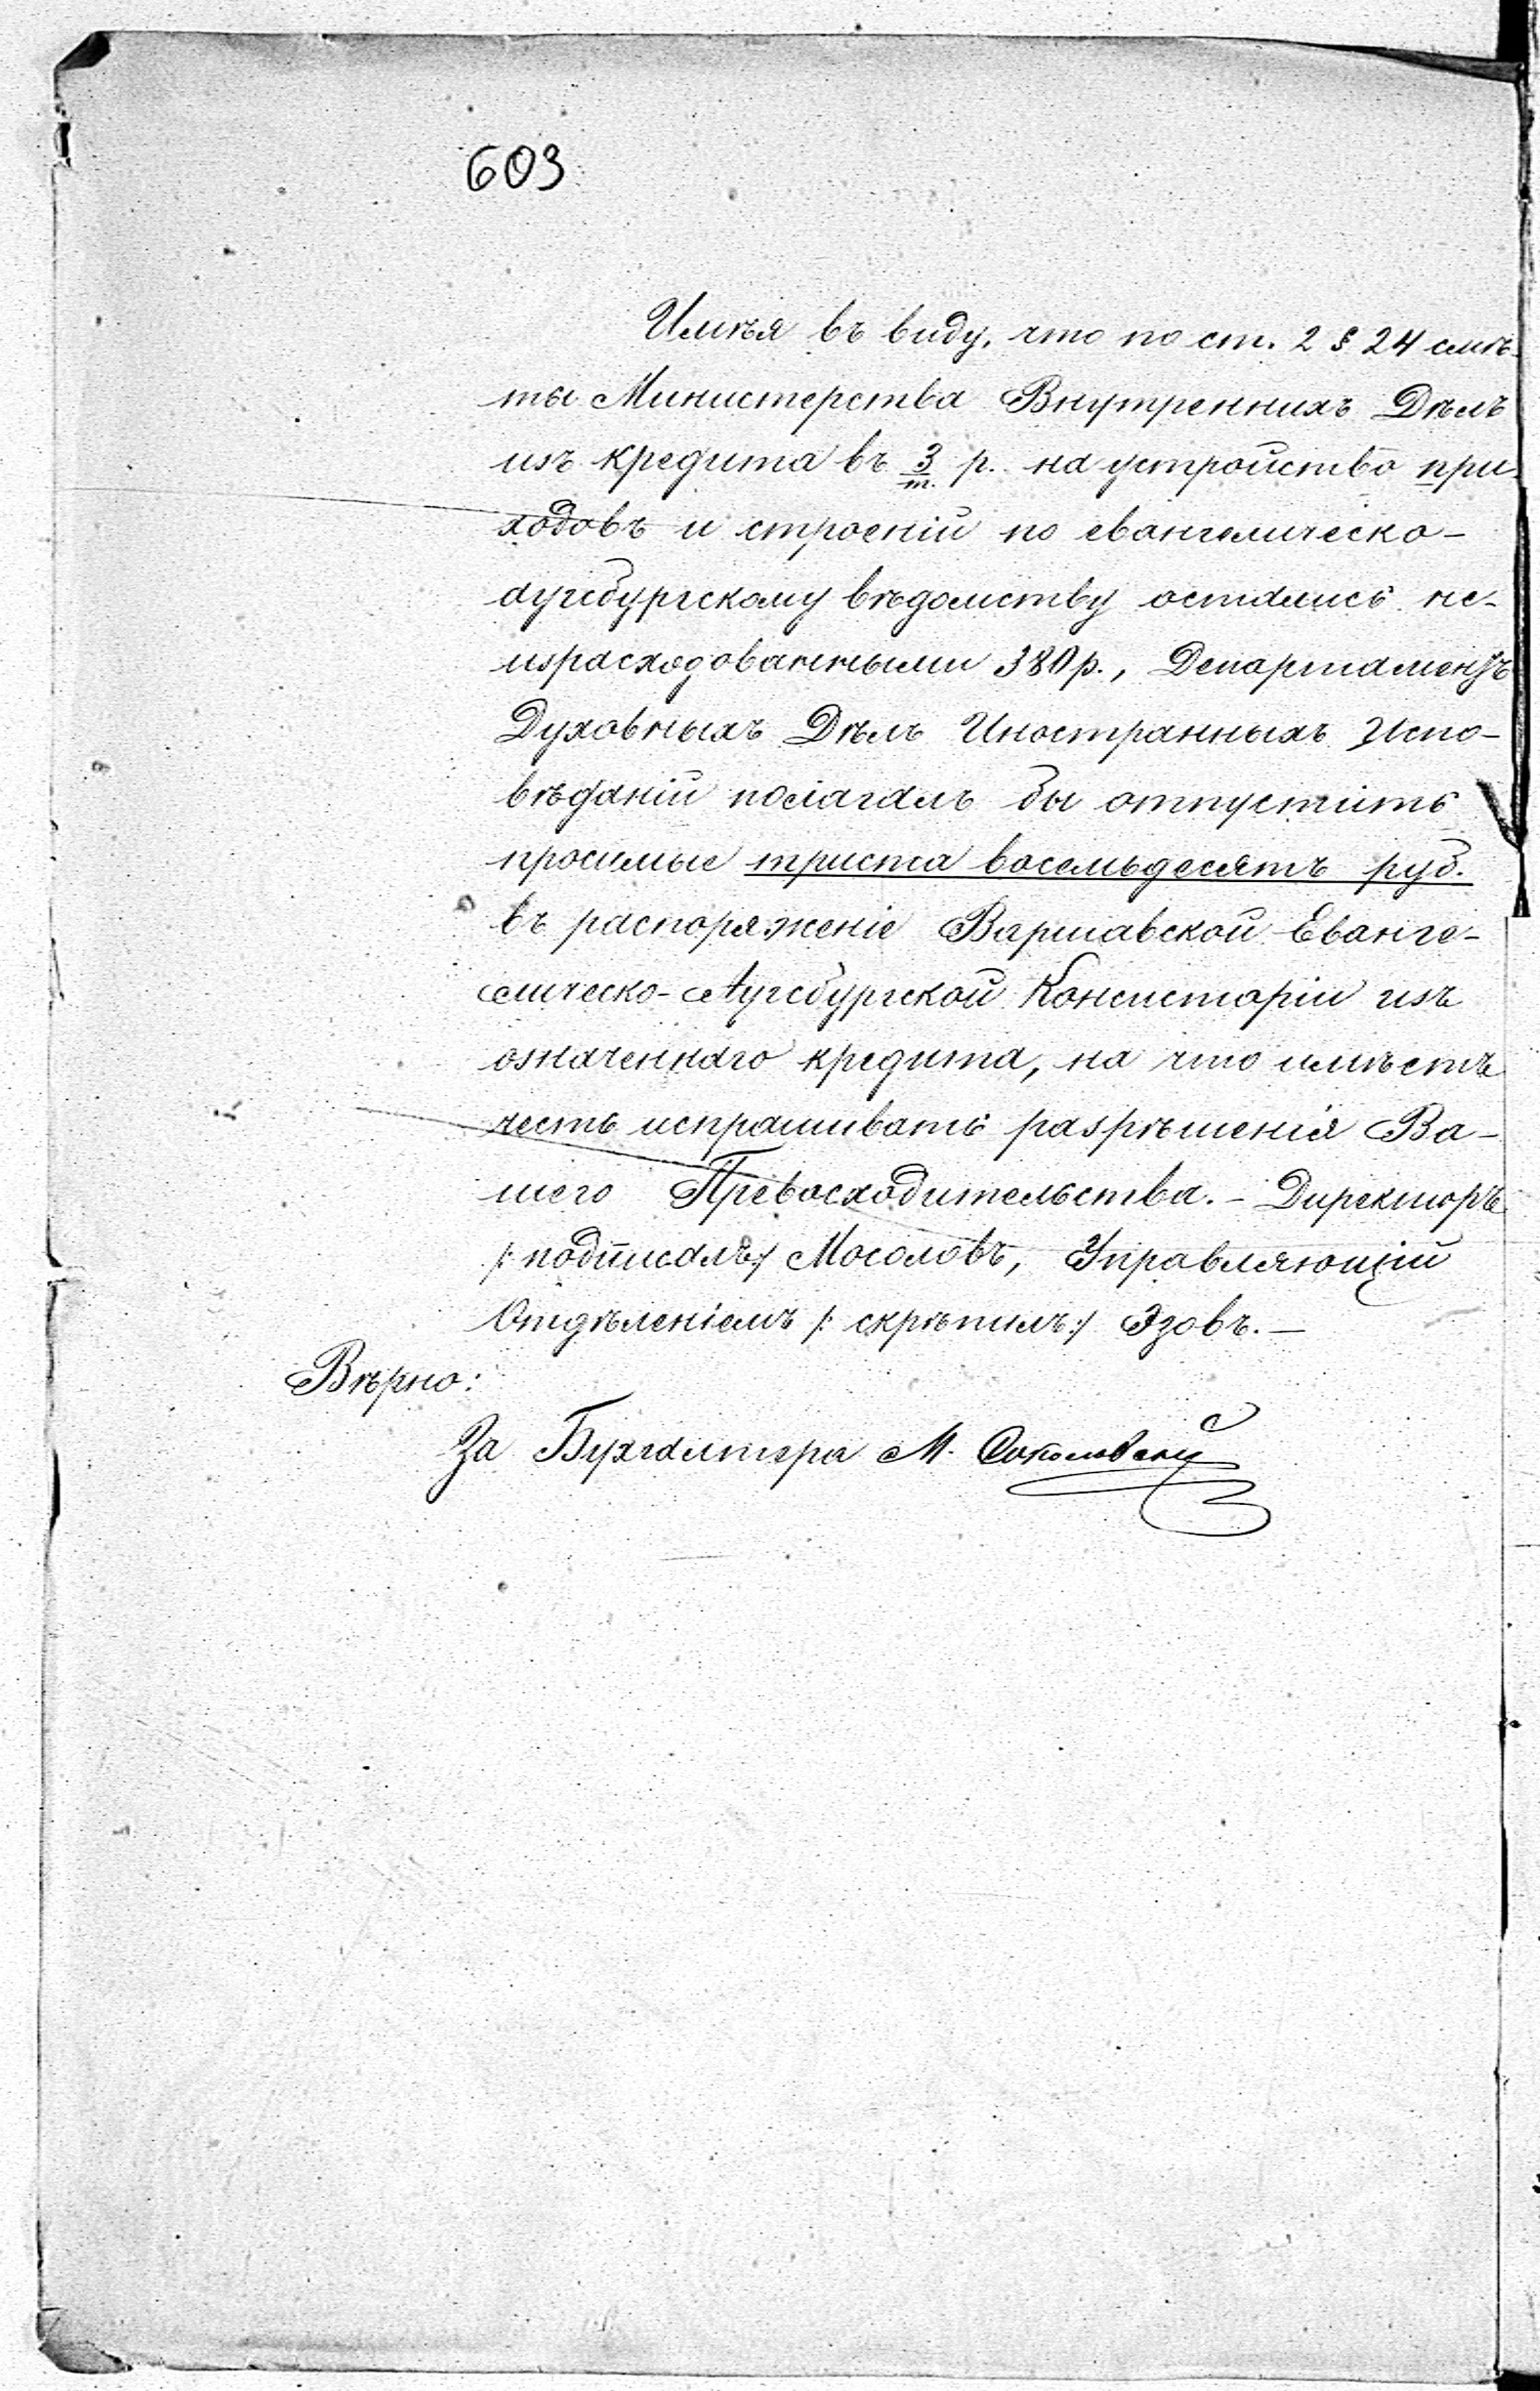 603
Имѣя въ виду, что по ст. 2 § 24 смѣ-
ты Министерства Внутреннихъ Дѣлъ
изъ кредита въ 3/т. р. на устройство при-
ходовъ и строеній по евангелическо-
аугсбургскому вѣдомству остались не-
израсходованными 380 р., Департаментъ
Духовныхъ Дѣлъ Иностранныхъ Испо-
вѣданій полагалъ бы отпустить
просимые триста восемьдесятъ руб.
въ распоряженіе Варшавской Еванге-
лическо-Аугсбургской Консисторіи изъ
означеннаго кредита, на что имѣетъ
честь испрашивать разрѣшенія Ва-
шего Превосходительства. - Директоръ
/: подписалъ :/ Мосоловъ, Управляющій
Отдѣленіемъ /: скрѣпилъ :/ Эзовъ. —
Вѣрно:
За Бухгалтера М. Соколовскій